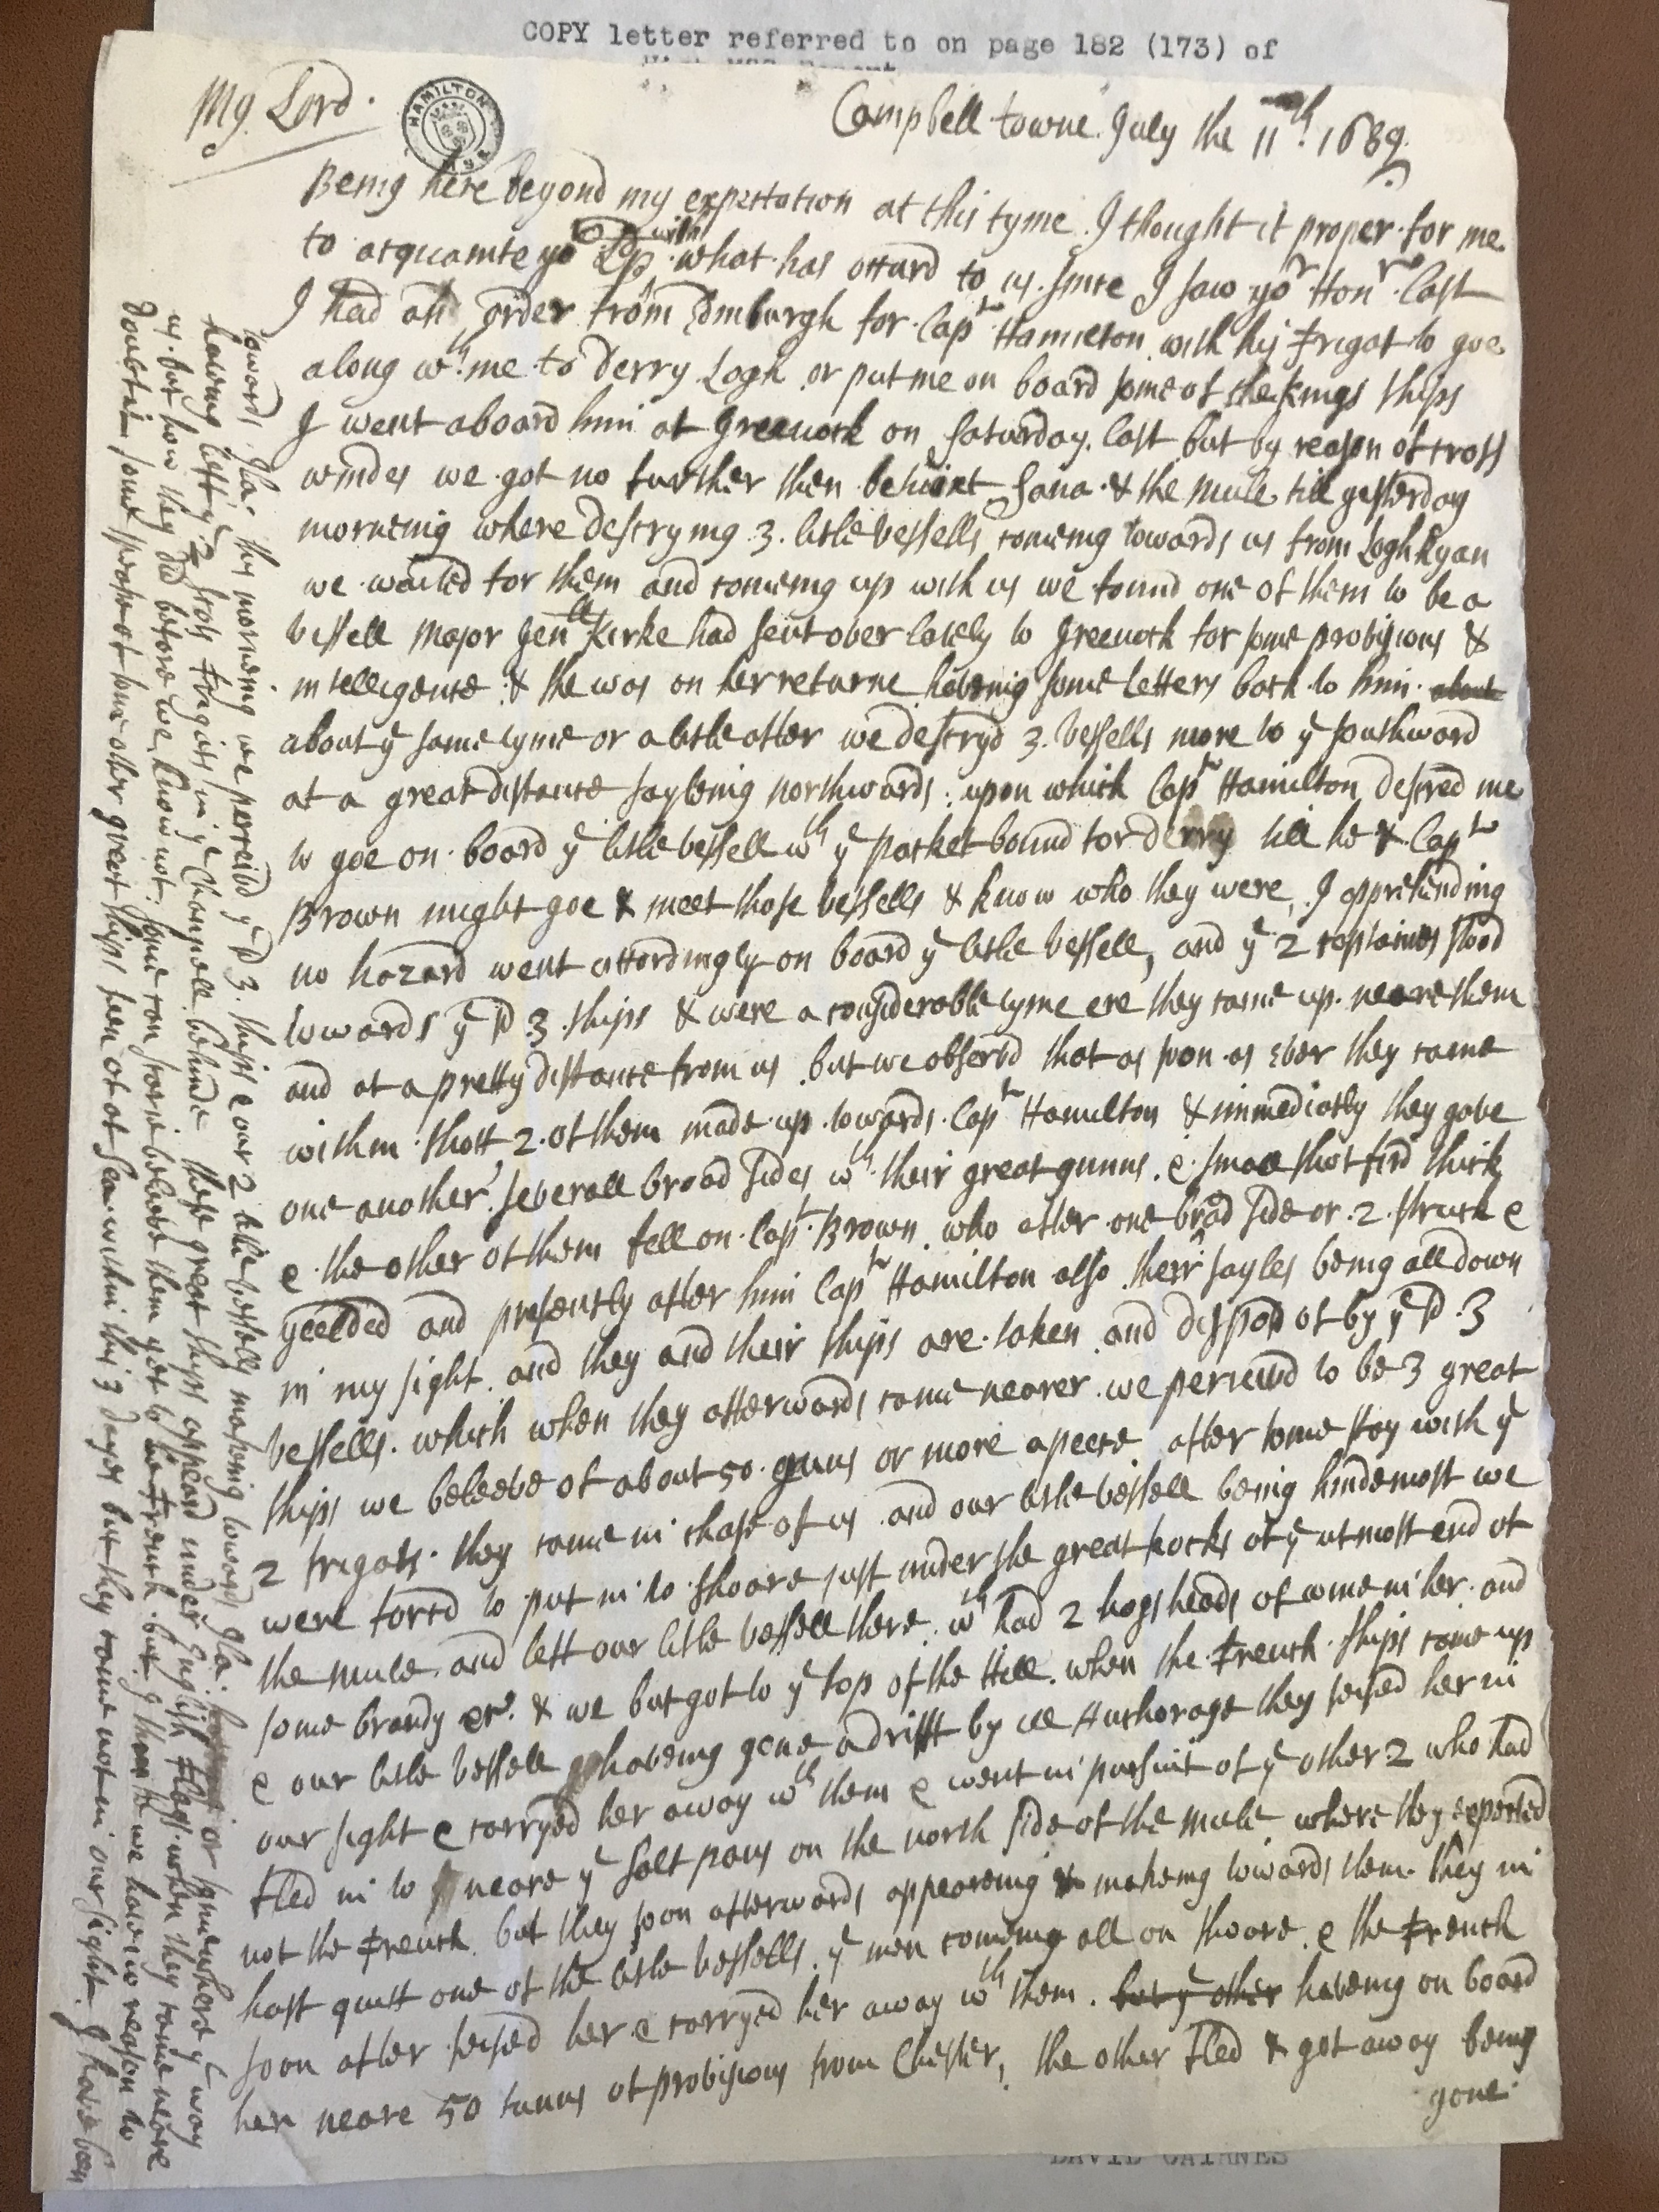 COPY letter referred to on page 182 (173) of
My Lord.
HAMILTON
Campbell towne July the 11th. 1689.
Being here beyond my expectation at this tyme. I thought it proper for me
to acquainte yor Lop with what has occurd to us. since I saw yor Honr. last
I had an order from Edinburgh for Capt Hamilton with his Frigat to goe
along wth. me to Derry Logh or put me on board some of the Kings ships
I went aboard him at Greenock on Saturday last but by reason of cross
windes we got no further then betwixt Sana & the Mule till yesterday
morneing where descrying 3. litle vessells comeing towards us from Logh Ryan
we waited for them and comeing up with us we found one of them to be a
vessell Major Genll Kirke had sent over lately to Greenock for some provisions &
intelligence. & she was on her returne haveing some letters back to him. about
about ye same tyme or a litle after we descryd 3. vessells more to ye southward
at a great distance sayleing northwards: upon which Capt Hamilton desired me
to goe on board ye litle vessell wth ye packet bound for Derry till he & Capt
Brown might goe & meet those vessells & know who they were, I apprehending
no hazard went accordingly on board ye litle vessell, and ye 2 captaines stood
towards ye sd 3 ships & were a considerable tyme ere they came up neare them
and at a pretty distance from us. but we observd that as soon as ever they came
within shott 2. of them made up towards Capt Hamilton & immediatly they gave
one another severall broad sides wth. their great gunns. e small shot fird thick
e the other of them fell on Capt. Brown. who after one broad side or 2. struck e
yeelded and presently after him Capt Hamilton also their sayles being all down
in my sight. and they and their ships are taken and disposd of by ye sd. 3
vessells. which when they afterwards came nearer we perceivd to be 3 great
ships we beleeve of about 50 guns or more apeece after some stay with ye
2 frigats. they came in chase of us and our litle vessell being hindemost we
were forcd to put in to shoare just under the great rocks of ye utmost end of
the Mule. and left our litle vessell there. wch had 2 hogsheads of wine in her. and
some brandy &c. & we but got to ye top of the Hill. when the French ships came up
e our litle vessell haveing gone adrifft by ill Anchorage they seised her in
our sight e carryed her away wth them e went in pursuit of ye other 2 who had
fled in to neare ye salt pans on the north side of the Mule where they expected
not the French. but they soon afterwards appeareing & makeing towards them. they in
hast quitt one of the litle vessells. ye men comeing all on shoare. e the French
soon after seised her e carryed her away wth them. but ye other haveing on board
her neare 50 tunns of provisions from Chester, the other fled & got away being
gone
towards Ila. this morneing we perceivd ye sd 3. ships e our 2 litle vessells makeing towards Ila. or somewhere yt way
haveing left ye 2 Scots Frigats in ye Channell behinde these great ships appeard under English Flags when they came neare
us. but how they did before we know not. some can scarce beleeve them yet to be French but I think we have no reason to
doubt it. some speake of some other great ships seen of at Sea within this 3 dayes but they came not in our sight. I have been